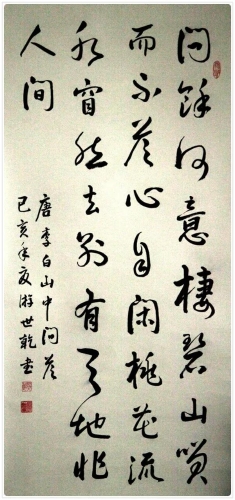 问馀何意棲碧山笑
而不答心自闲桃花流
水窅然去别有天地非
人间
唐李白山中问答
己亥年夏游世乾书